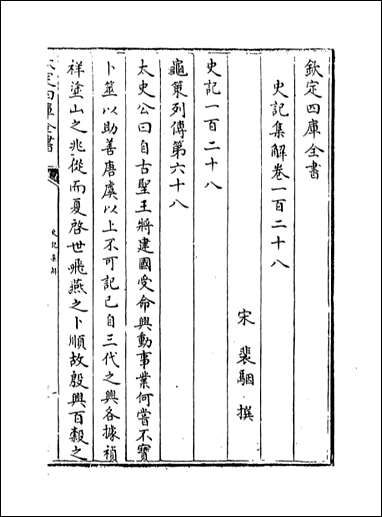 欽定四庫全書
史記集解卷一百二十八
宋 裴駰 撰
史記一百二十八
龜策列傳第六十八
太史公曰自古聖王將建國受命興動事業何嘗不寳
卜筮以助善唐虞以上不可記已自三代之興各據禎
祥塗山之兆從而夏啓世飛燕之卜順故殷興百穀之
欽定四庫全書
史記集解